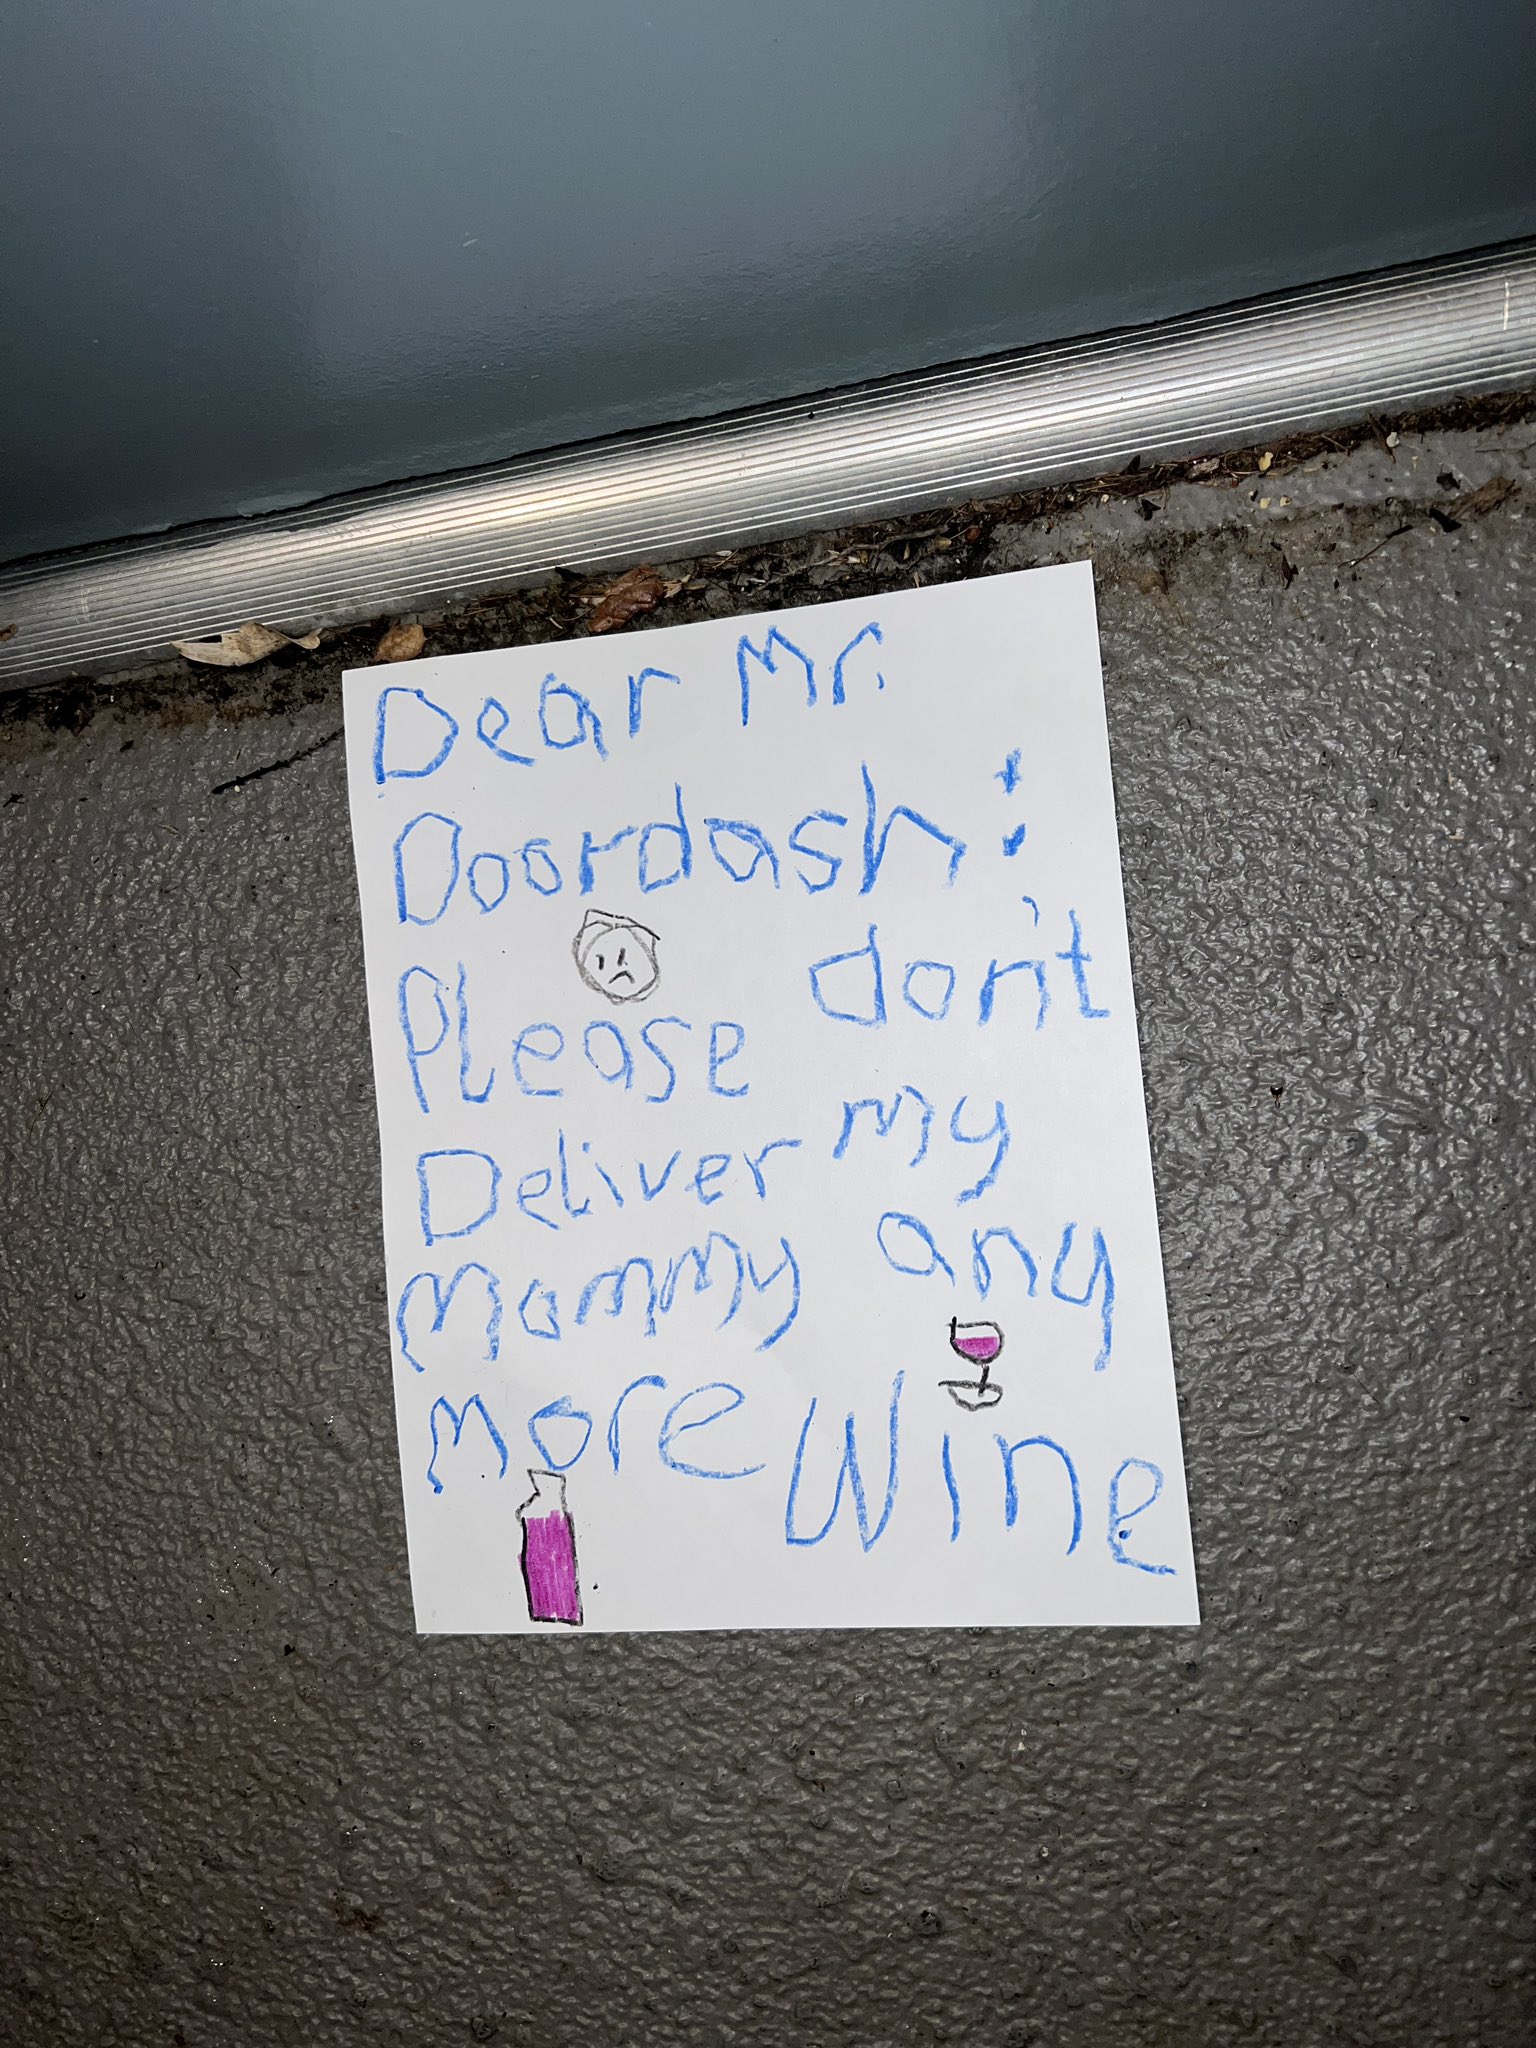 Dear Mr.
Doordash:
Please don't
Deliver my
Mommy any
more Wine